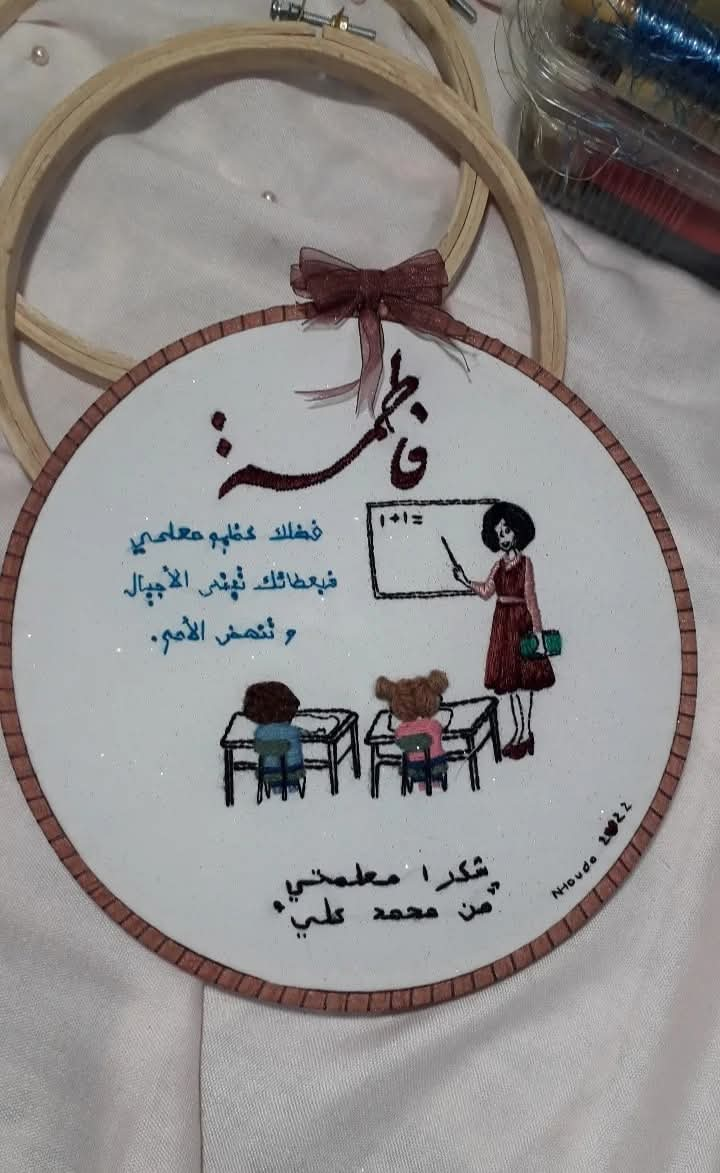 فاطمة
1+1=
فضلك عظيم معلمتي
فبعطائك تهتدي الأجيال
و تنهض الأمم.
شكرا معلمتي
"من محمد علي"
Nhouda 2022